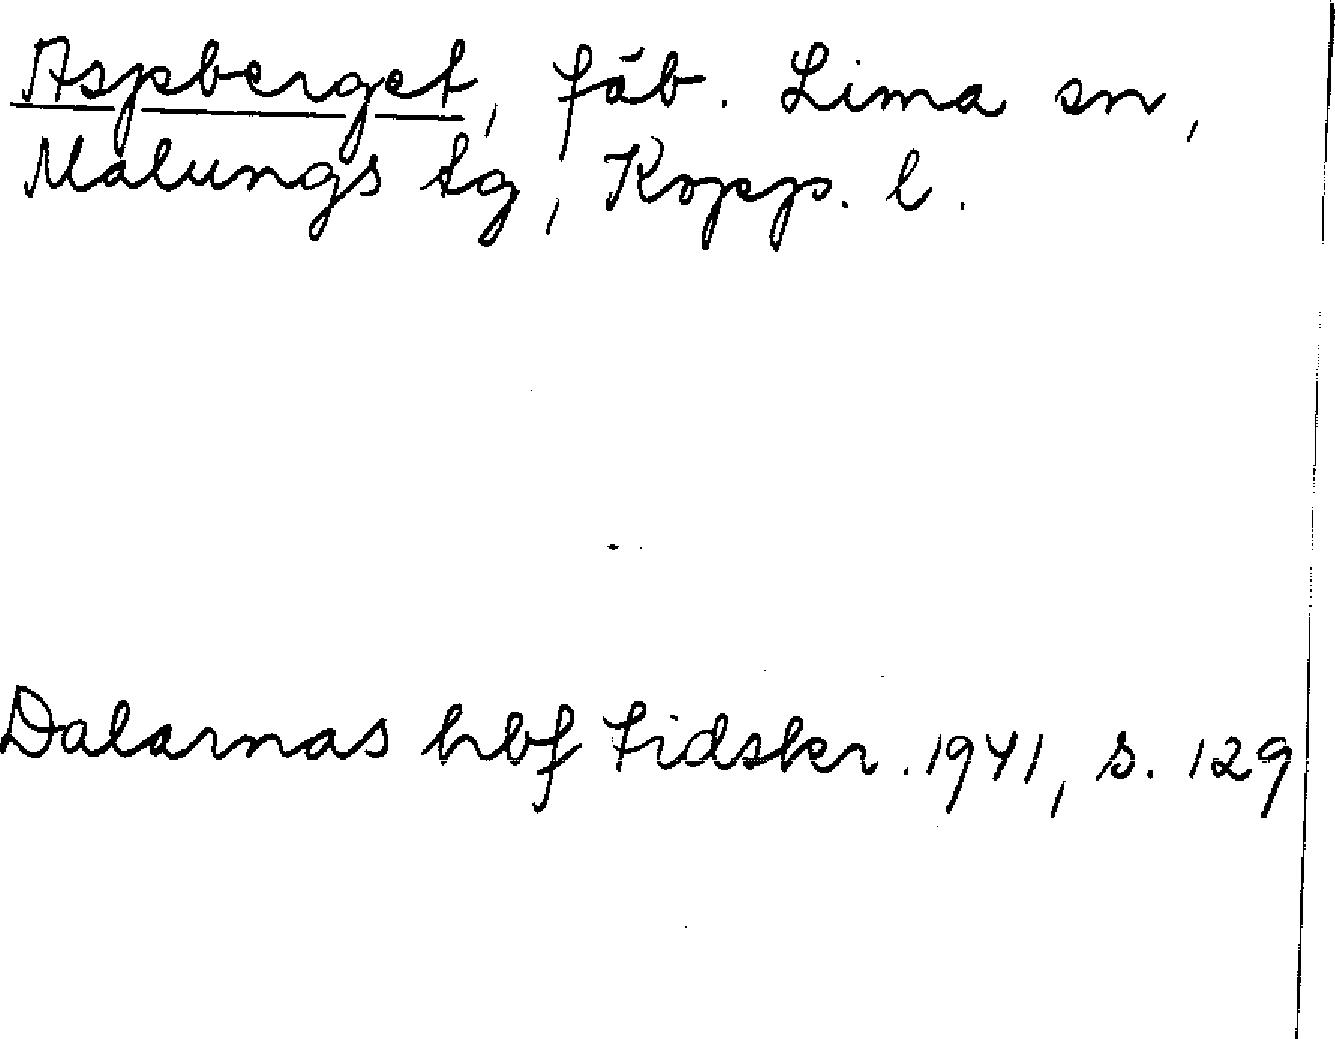 Aspberget, fäb. Lima sn,
Malungs tg, Kopp. l.
Dalarnas hbf tidskr. 1941, s. 129